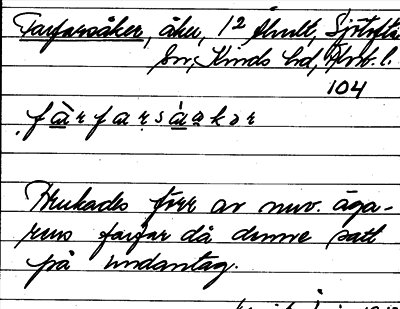 Farfarsåker, åker, 1² Hult, Sjötofta
Sn, Kinds hd, Älvb. l.
104
fàrfarsá̀akər
Brukades förr av nuv. äga-
rens farfar då denne satt
på undantag.